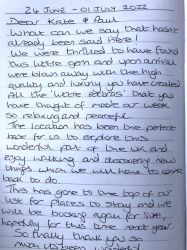 24 JUNE - 01 JULY 2022
Dear Kate & Paul
What can we say that hasn't
already been said here!
We were thrilled to have found
this little gem and upon arrival
were blown away with the high
quality and luxury you have created
All the little extras that you
have thought of made our week
so relaxing and peaceful.
The location has been the perfect
base for us to explore this
wonderful part of the UK and
enjoy walking and discovering new
things which we will have to come
back to do.
This has gone to the top of our
list for places to stay and we
will be booking again for sure,
hopefully for this time next year.
So thank you so
much